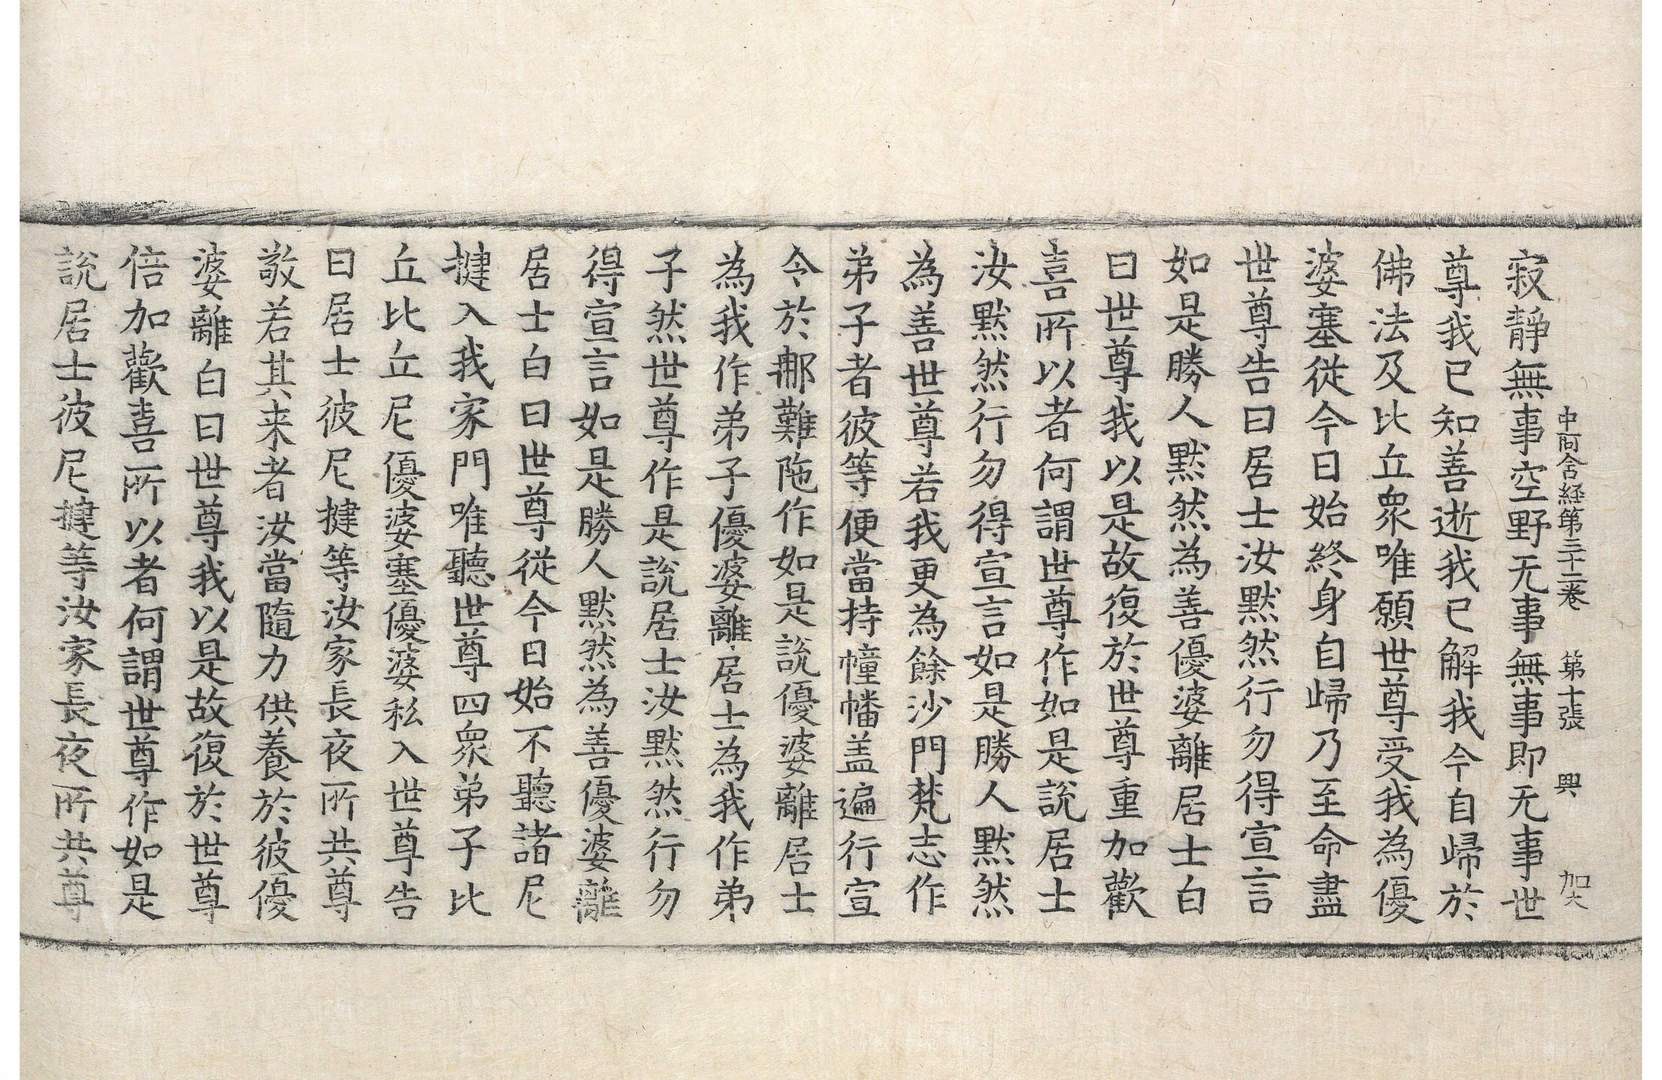 中阿含経第三十二巻　第十張　興　加大
寂静無事空野无事無事即无事世
尊我已知善逝我已解我今自㱕於
佛法及比丘衆唯願世尊受我為優
婆塞従今日始終身自㱕乃至命盡
世尊告曰居士汝黙然行勿得宣言
如是勝人黙然為善優婆離居士白
曰世尊我以是故復於世尊重加歡
喜所以者何謂世尊作如是說居士
汝黙然行勿得宣言如是勝人黙然
為善世尊若我更為餘沙門梵志作
弟子者彼等便當持幢幡盖遍行宣
令於那難陁作如是說優婆離居士
為我作弟子優婆離居士為我作弟
子然世尊作是說居士汝黙然行勿
得宣言如是勝人黙然為善優婆離
居士白曰世尊従今日始不聽諸尼
揵入我家門唯聽世尊四衆弟子比
丘比丘尼優婆塞優婆私入世尊告
曰居士彼尼揵等汝家長夜所共尊
敬若其来者汝當隨力供養於彼優
婆離白曰世尊我以是故復於世尊
倍加歡喜所以者何謂世尊作如是
說居士彼尼揵等汝家長夜所共尊